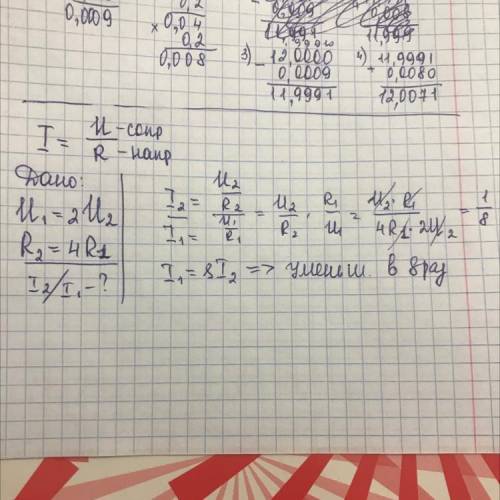 0,0009
0,2
× 0,04
0,2
0,008
0,009
11,991
3) 12,0000
- 0,0009
11,9991
4) 11,9991
+ 0,0080
12,0071
I = U - сопр
R - напр
Дано:
U₁ = 2U₂
R₂ = 4R1
I₂/I₁ - ?
I₂/I₁ = (U₂/R₂)/(U₁/R₁) = U₂/R₂ · R₁/U₁ = U₂·R₁/4R1·2U₂ = 1/8
I₁ = 8I₂ => уменьш. в 8 раз